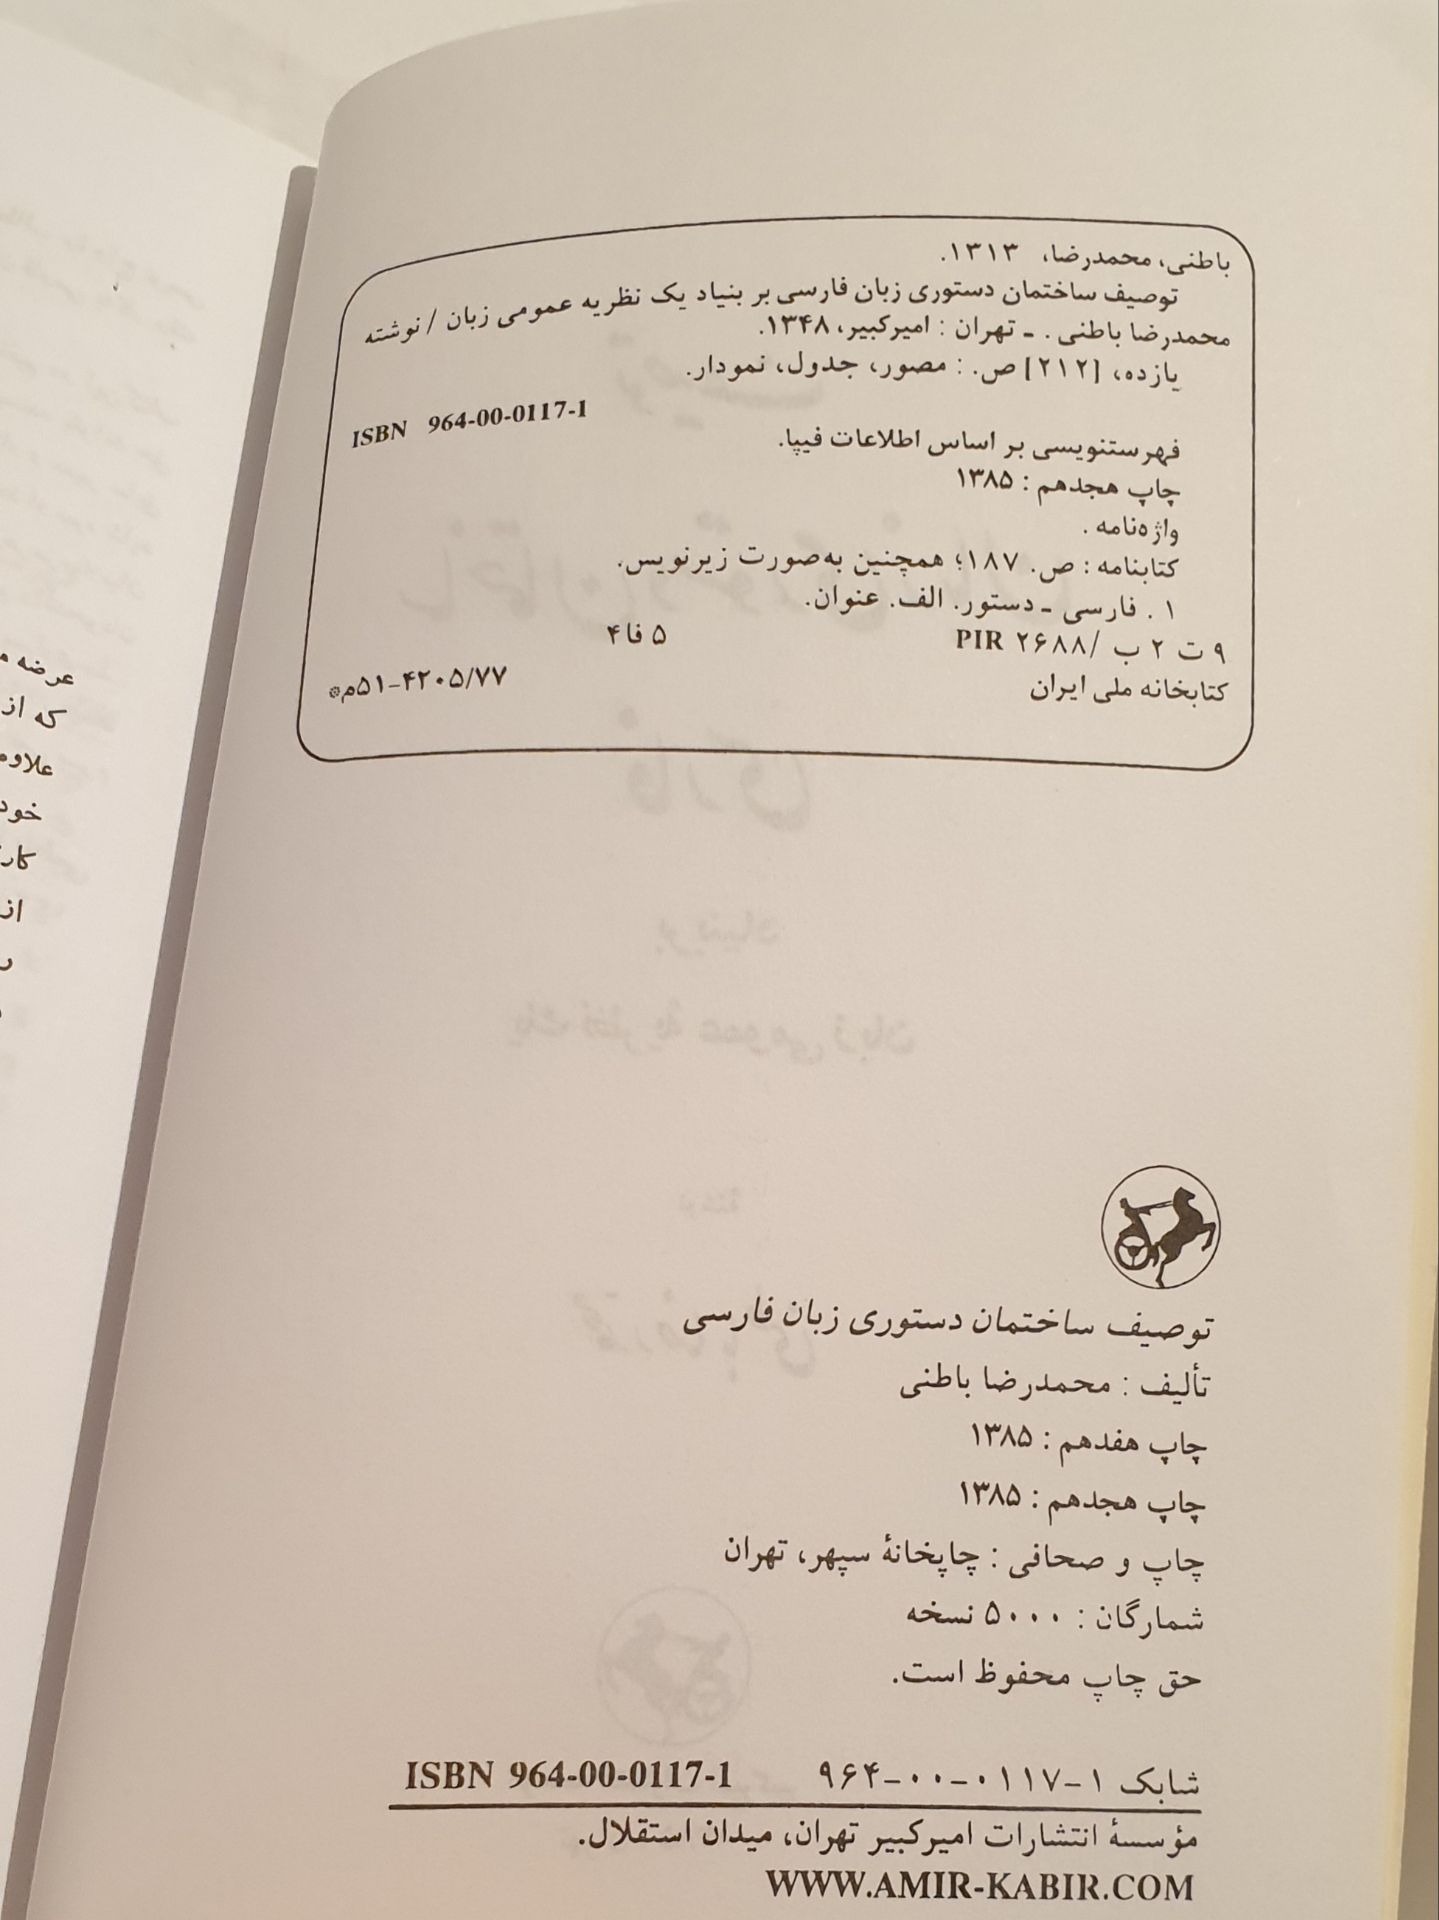 باطنی، محمدرضا، ۱۳۱۳.
توصیف ساختمان دستوری زبان فارسی بر بنیاد یک نظریه عمومی زبان / نوشته
محمدرضا باطنی . ـ تهران : امیرکبیر، ۱۳۴۸.
یازده، [۲۱۲] ص. : مصور، جدول، نمودار.
ISBN 964-00-0117-1
فهرستنویسی بر اساس اطلاعات فیپا.
چاپ هجدهم : ۱۳۸۵
واژه‌نامه .
کتابنامه : ص. ۱۸۷؛ همچنین به‌صورت زیرنویس.
۱ . فارسی ـ دستور. الف. عنوان.
۹ ت ۲ ب /PIR ۲۶۸۸ ۵ فا ۴
کتابخانه ملی ایران ۵۱-۴۲۰۵/۷۷م*
عرضه
که از
علاوه
خود
از
توصیف ساختمان دستوری زبان فارسی
تألیف : محمدرضا باطنی
چاپ هفدهم : ۱۳۸۵
چاپ هجدهم : ۱۳۸۵
چاپ و صحافی : چاپخانهٔ سپهر، تهران
شمارگان : ۵۰۰۰ نسخه
حق چاپ محفوظ است.
شابک ۱-۰۱۱۷-۰۰-۹۶۴ ISBN 964-00-0117-1
مؤسسهٔ انتشارات امیرکبیر تهران، میدان استقلال.
WWW.AMIR-KABIR.COM